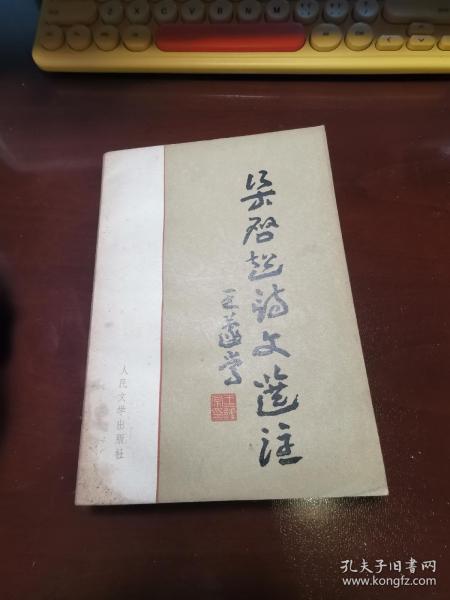 梁启超诗文选注
王蘧常
人民文学出版社
孔夫子旧书网
www.kongfz.com